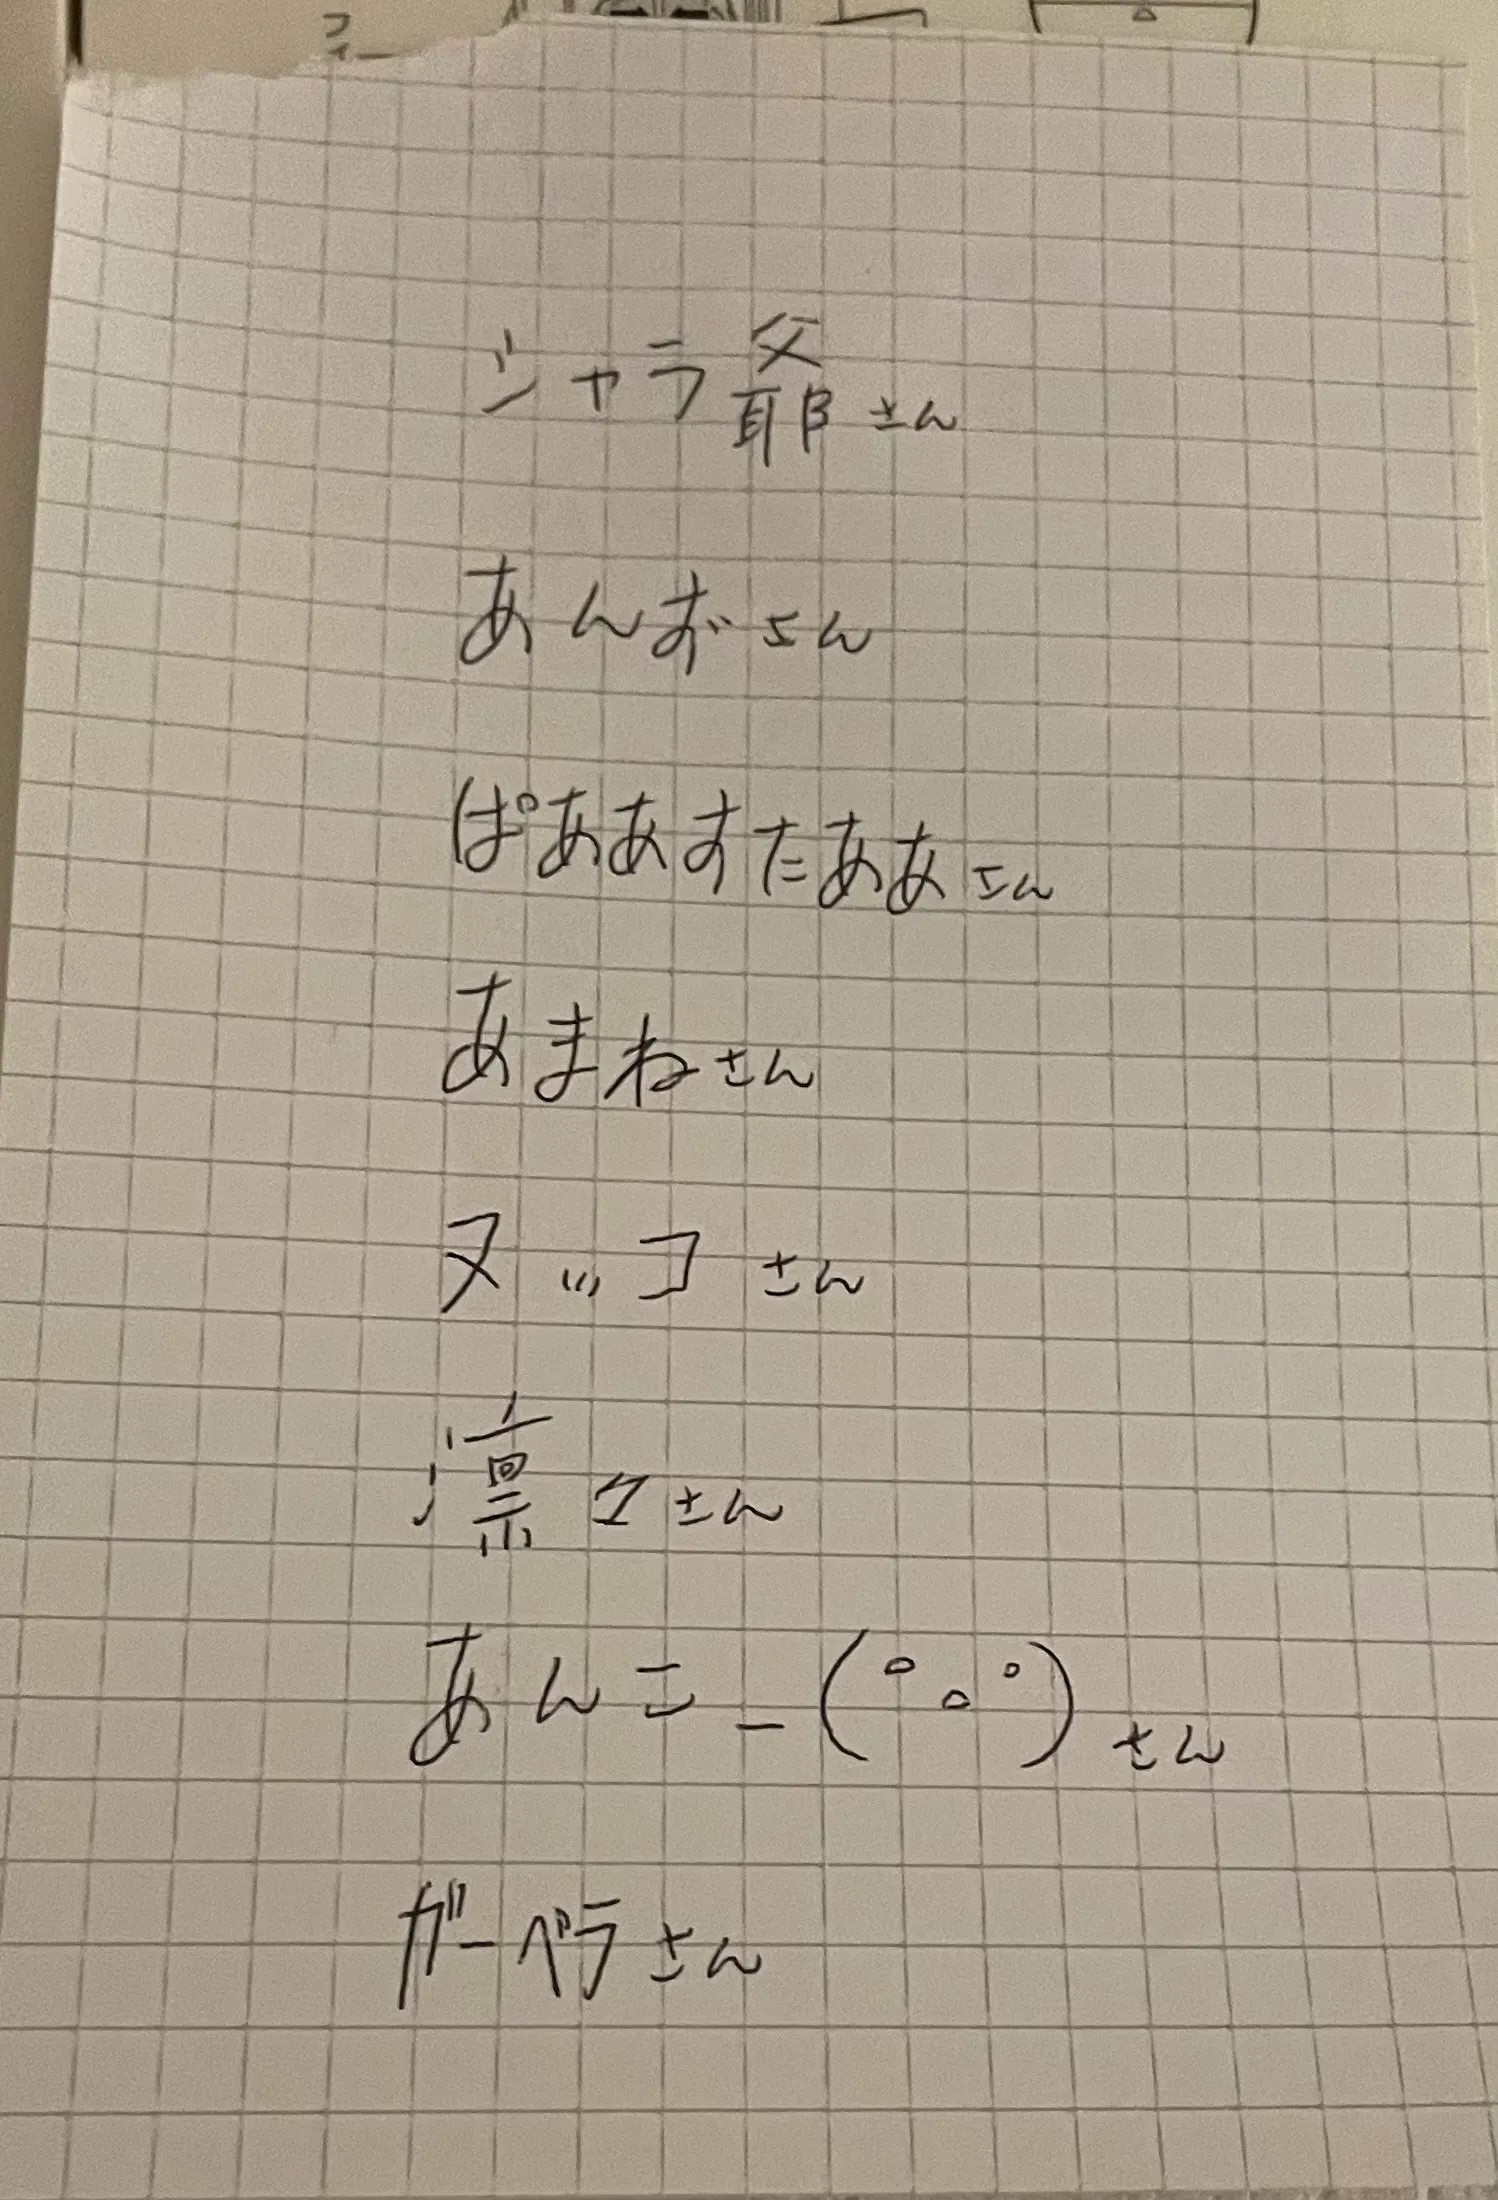 ジャラ爺さん
あんずさん
ぱああすたああさん
あまねさん
ヌッコさん
さん
あんこ_(°o°)さん
ガーベラさん